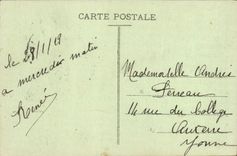 CARTE POSTALE
le 28/1/18
a mercredi matin
Aimée
Mademoiselle Andrée
Perreau
14 rue du Collège
Auxerre
Yonne